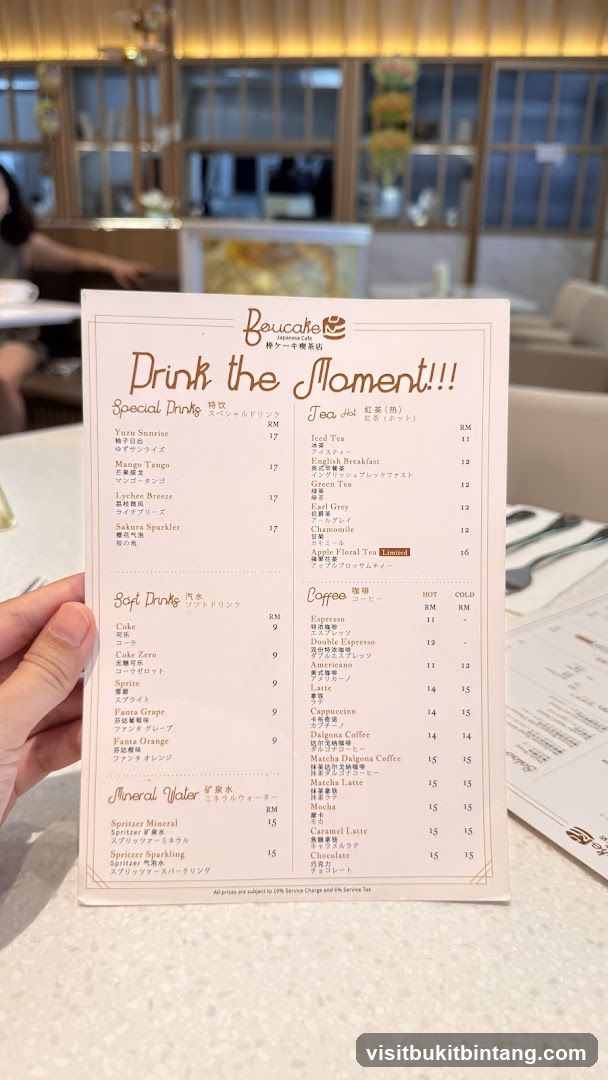 Beucake
Japanese Cafe
樺ケーキ喫茶店
Drink the Moment!!!
Special Drinks 特饮
スペシャルドリンク
RM
Yuzu Sunrise 17
柚子日出
ゆずサンライズ
Mango Tango 17
芒果探戈
マンゴータンゴ
Lychee Breeze 17
荔枝微风
ライチブリーズ
Sakura Sparkler 17
樱花气泡
桜の泡
Soft Drinks 汽水
ソフトドリンク
RM
Coke 9
可乐
コーラ
Coke Zero 9
无糖可乐
コーラゼロット
Sprite 9
雪碧
スプライト
Fanta Grape 9
芬达葡萄味
ファンタ グレープ
Fanta Orange 9
芬达橙味
ファンタ オレンジ
Mineral Water 矿泉水
ミネラルウォーター
RM
Spritzer Mineral 15
Spritzer 矿泉水
スプリッツァーミネラル
Spritzer Sparkling 15
Spritzer 气泡水
スプリッツァースパークリング
Tea Hot 紅茶(热)
紅茶(ホット)
RM
Iced Tea 11
冰茶
アイスティー
English Breakfast 12
英式早餐茶
イングリッシュブレックファスト
Green Tea 12
绿茶
緑茶
Earl Grey 12
伯爵茶
アールグレイ
Chamomile 12
甘菊
カモミール
Apple Floral Tea Limited 16
蘋果花茶
アップルブロッサムティー
Coffee 咖啡
コーヒー
HOT COLD
RM RM
Espresso 11 -
特浓咖啡
エスプレッソ
Double Espresso 12 -
双份特浓咖啡
ダブルエスプレッソ
Americano 11 12
美式咖啡
アメリカーノ
Latte 14 15
拿铁
ラテ
Cappuccino 14 15
卡布奇诺
カプチーノ
Dalgona Coffee 14 14
达尔戈纳咖啡
ダルゴナコーヒー
Matcha Dalgona Coffee 15 15
抹茶达尔戈纳咖啡
抹茶ダルゴナコーヒー
Matcha Latte 15 15
抹茶拿铁
抹茶ラテ
Mocha 15 15
摩卡
モカ
Caramel Latte 15 15
焦糖拿铁
キャラメルラテ
Chocolate 15 15
巧克力
チョコレート
All prices are subject to 10% Service Charge and 6% Service Tax
visitbukitbintang.com